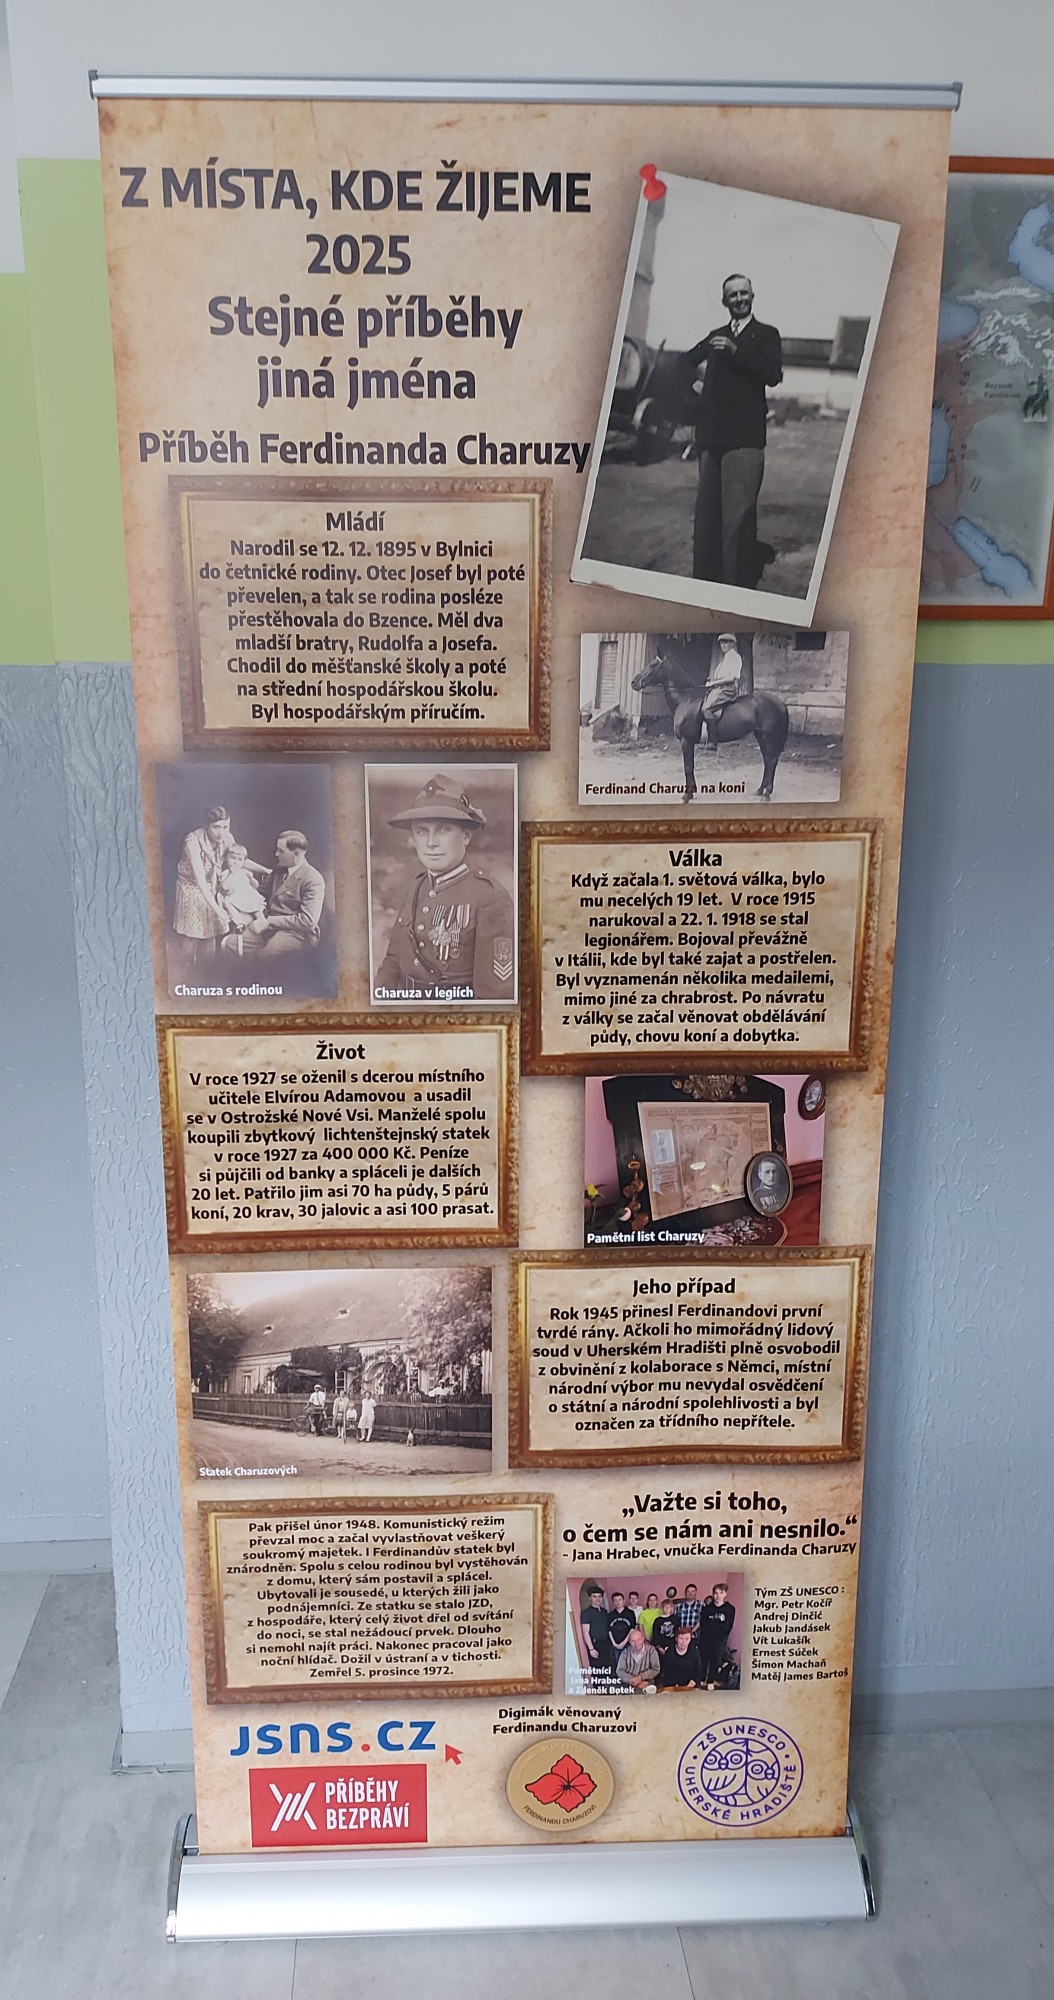 Z MÍSTA, KDE ŽIJEME
2025
Stejné příběhy
jiná jména
Příběh Ferdinanda Charuzy
Mládí
Narodil se 12. 12. 1895 v Bylnici
do četnické rodiny. Otec Josef byl poté
převelen, a tak se rodina posléze
přestěhovala do Bzence. Měl dva
mladší bratry, Rudolfa a Josefa.
Chodil do měšťanské školy a poté
na střední hospodářskou školu.
Byl hospodářským příručím.
Ferdinand Charuza na koni
Charuza s rodinou
Charuza v legiích
Válka
Když začala 1. světová válka, bylo
mu necelých 19 let. V roce 1915
narukoval a 22. 1. 1918 se stal
legionářem. Bojoval převážně
v Itálii, kde byl také zajat a postřelen.
Byl vyznamenán několika medailemi,
mimo jiné za chrabrost. Po návratu
z války se začal věnovat obdělávání
půdy, chovu koní a dobytka.
Život
V roce 1927 se oženil s dcerou místního
učitele Elvírou Adamovou a usadil
se v Ostrožské Nové Vsi. Manželé spolu
koupili zbytkový lichtenštejnský statek
v roce 1927 za 400 000 Kč. Peníze
si půjčili od banky a spláceli je dalších
20 let. Patřilo jim asi 70 ha půdy, 5 párů
koní, 20 krav, 30 jalovic a asi 100 prasat.
Pamětní list Charuzy
Statek Charuzových
Jeho případ
Rok 1945 přinesl Ferdinandovi první
tvrdé rány. Ačkoli ho mimořádný lidový
soud v Uherském Hradišti plně osvobodil
z obvinění z kolaborace s Němci, místní
národní výbor mu nevydal osvědčení
o státní a národní spolehlivosti a byl
označen za třídního nepřítele.
Pak přišel únor 1948. Komunistický režim
převzal moc a začal vyvlastňovat veškerý
soukromý majetek. I Ferdinandův statek byl
znárodněn. Spolu s celou rodinou byl vystěhován
z domu, který sám postavil a splácel.
Ubytovali je sousedé, u kterých žili jako
podnájemníci. Ze statku se stalo JZD,
z hospodáře, který celý život dřel od svítání
do noci, se stal nežádoucí prvek. Dlouho
si nemohl najít práci. Nakonec pracoval jako
noční hlídač. Dožil v ústraní a v tichosti.
Zemřel 5. prosince 1972.
„Važte si toho,
o čem se nám ani nesnilo.“
- Jana Hrabec, vnučka Ferdinanda Charuzy
Pamětníci
Jana Hrabec
a Zdeněk Botek
Tým ZŠ UNESCO :
Mgr. Petr Kočíř
Andrej Dinčić
Jakub Jandásek
Vít Lukašík
Ernest Súček
Šimon Machaň
Matěj James Bartoš
Digimák věnovaný
Ferdinandu Charuzovi
jsns.cz
PŘÍBĚHY
BEZPRÁVÍ
FERDINANDU CHARUZOVI
ZŠ UNESCO
UHERSKÉ HRADIŠTĚ